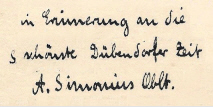 in Erinnerung an die
schönste Dübendorfer Zeit
A. Simonius Oblt.